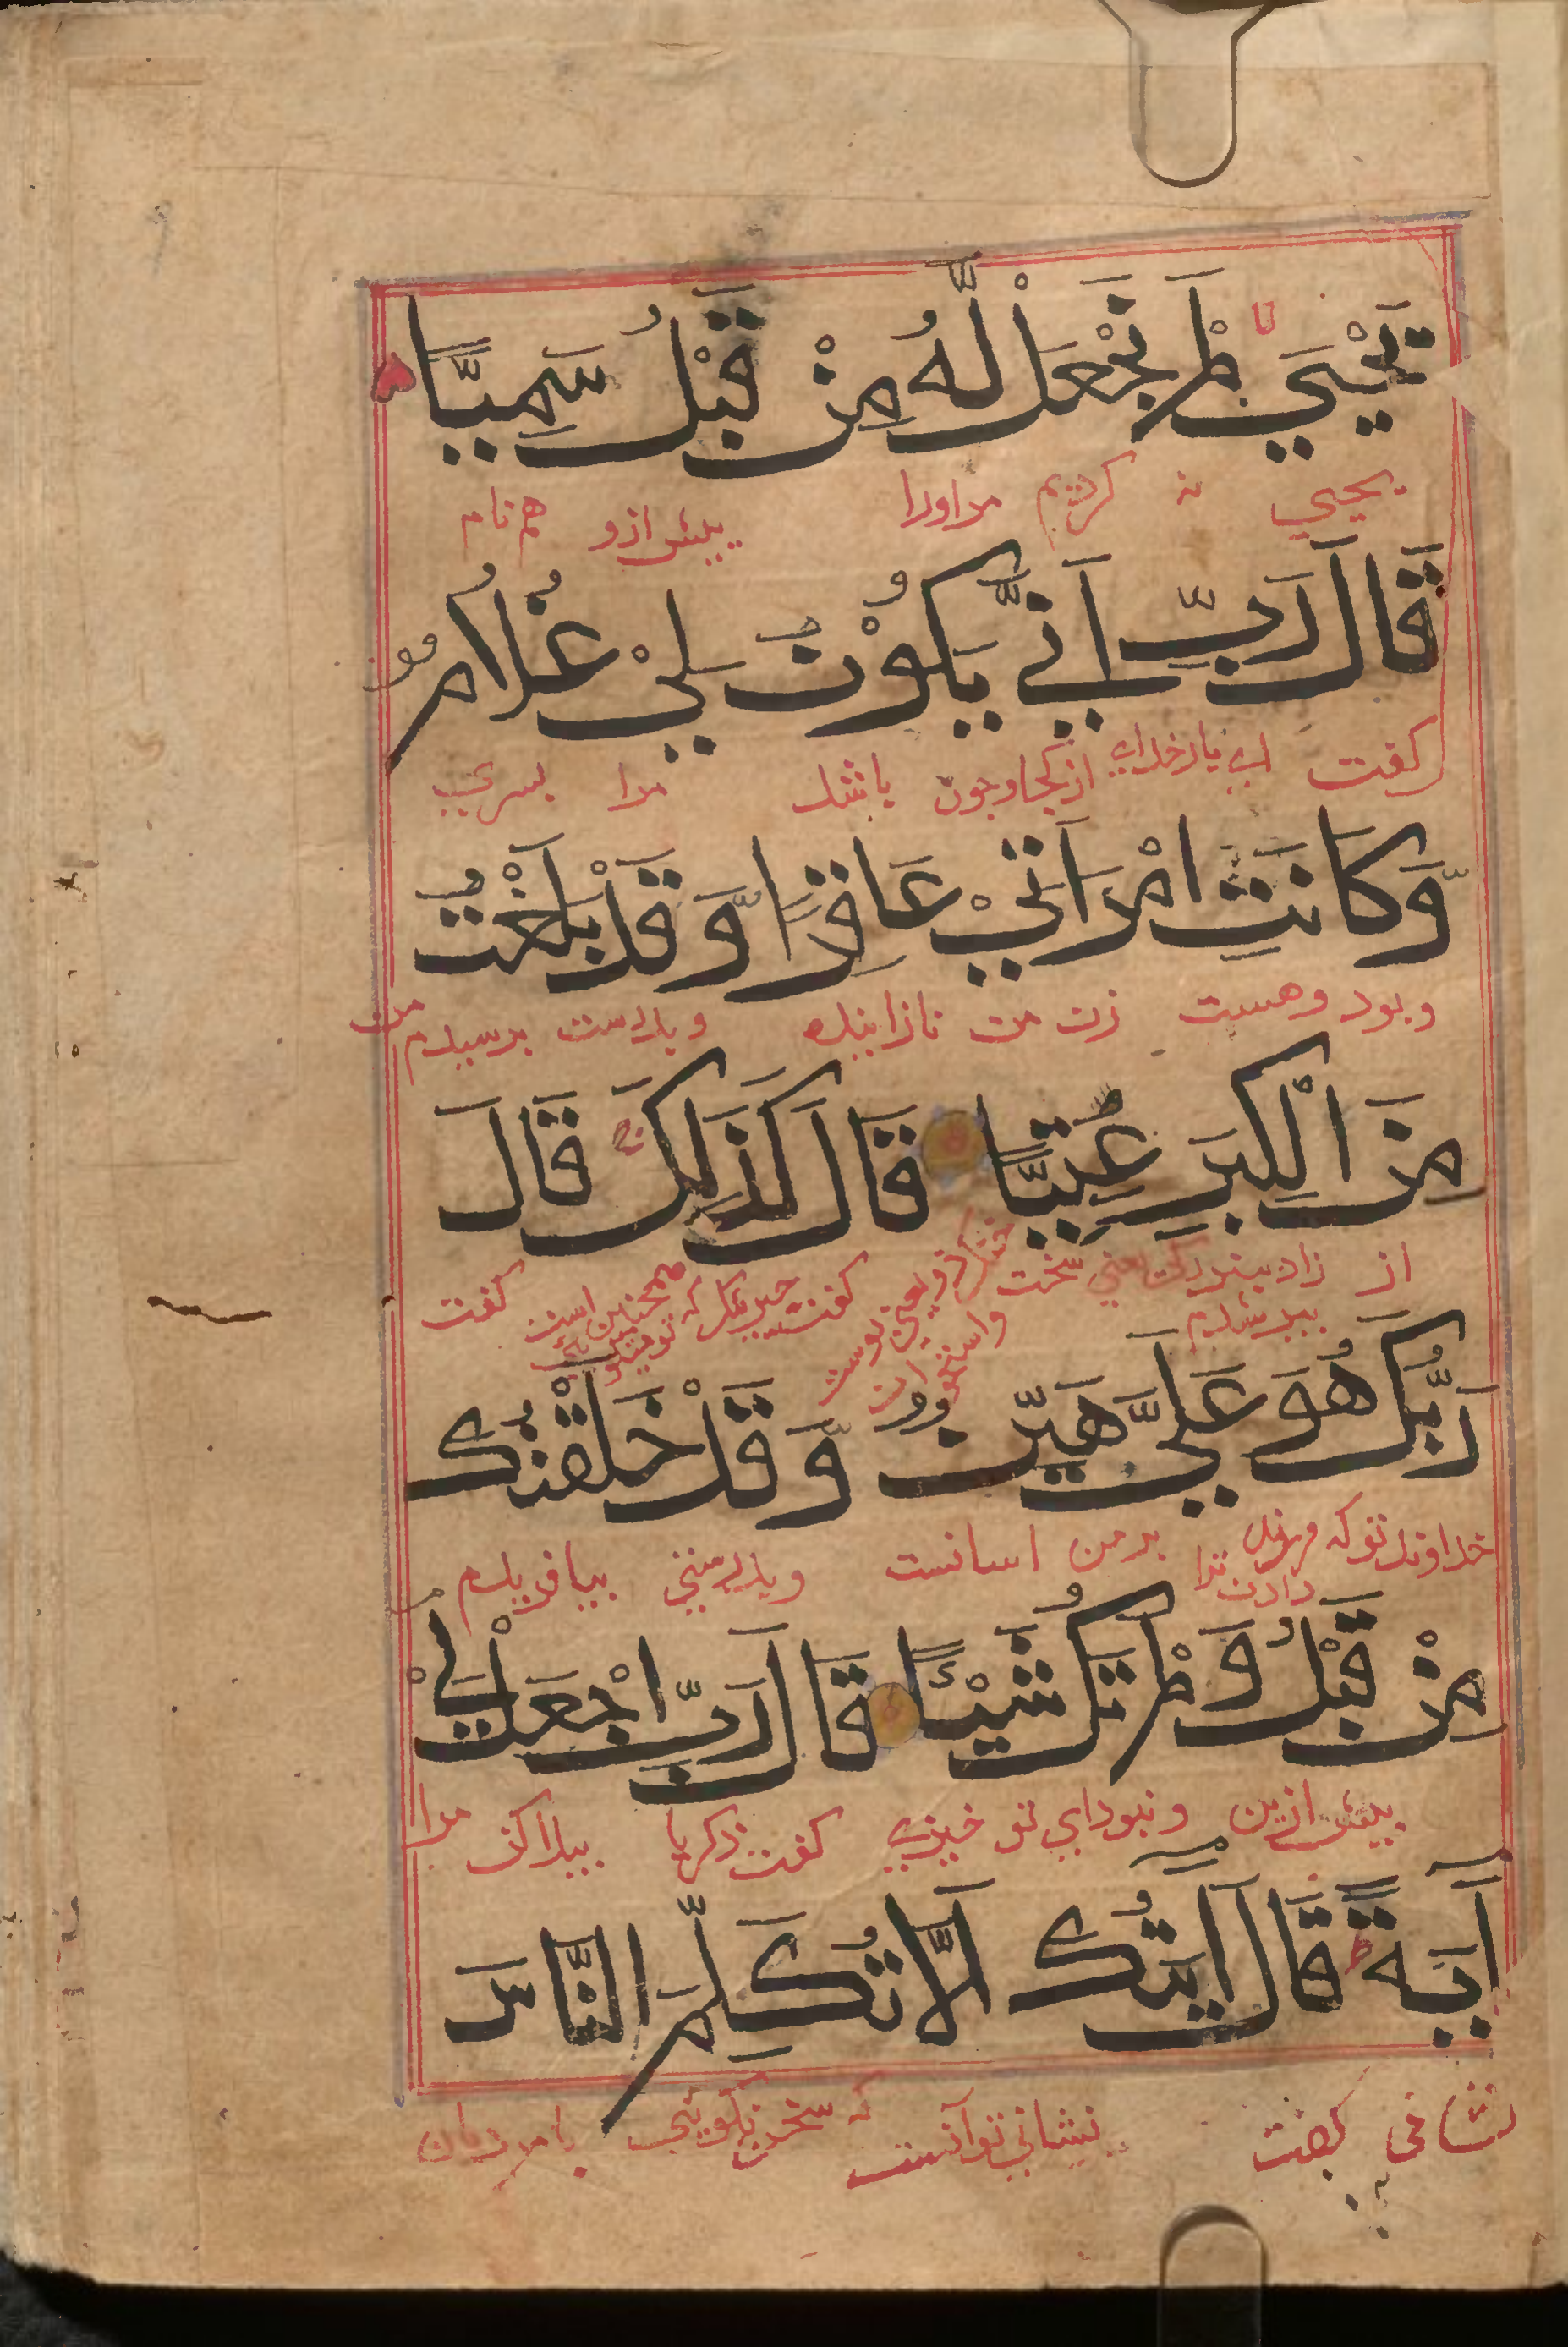 يَحْيَىٰ لَمْ نَجْعَلْ لَّهُ مِنْ قَبْلُ سَمِيًّا
يحيي نه كرديم مر اورا پيش ازو هم نام
قَالَ رَبِّ اَنّٰى يَكُوْنُ لِيْ غُلَامٌ
كفت اي بار خداي از كجا و چون باشد مرا پسري
وَّكَانَتِ امْرَاَتِيْ عَاقِرًا وَّقَدْ بَلَغْتُ
و بود و هست زن من نازاينده و بدرست برسيدم من
مِنَ الْكِبَرِ عِتِيًّا قَالَ كَذٰلِكَ قَالَ
از زاد سخت كفت كفت
رَبُّكَ هُوَ عَلَيَّ هَيِّنٌ وَّقَدْ خَلَقْتُكَ
خداوند تو كه فرزند دادن ترا بر من اسانست و بدرستي بيافريدم
مِنْ قَبْلُ وَلَمْ تَكُ شَيْئًا قَالَ رَبِّ اجْعَلْ لِيْ
پيش ازين و نبوداي تو چيزي كفت زكريا پيدا كن مرا
اٰيَةً قَالَ اٰيَتُكَ اَلَّا تُكَلِّمَ النَّاسَ
نشاني كفت نشاني تو آنست كه سخن نكويي با مردمان